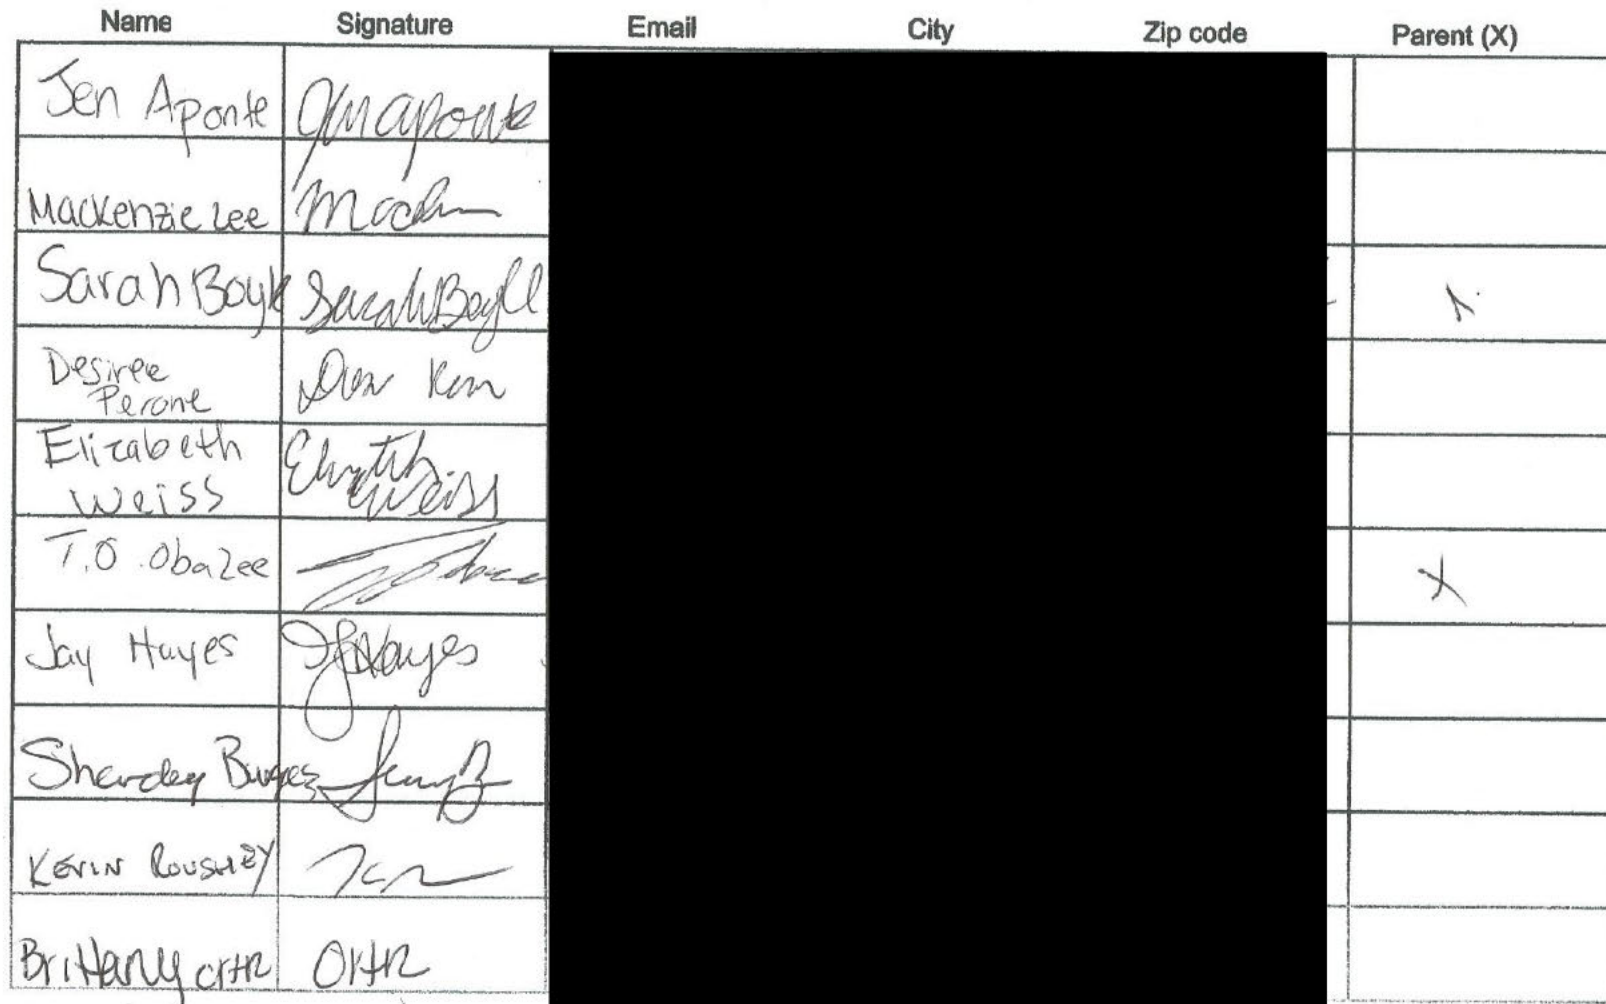 Name Signature Email City Zip code Parent (X)
Jen Aponte
Mackenzie Lee
Sarah Boyle Sarah Boyle X
Desiree
Perone
Elizabeth
Weiss Elizabeth Weiss
T.O. Obazee X
Jay Hayes JHayes
Kevin Roushey
Brittany